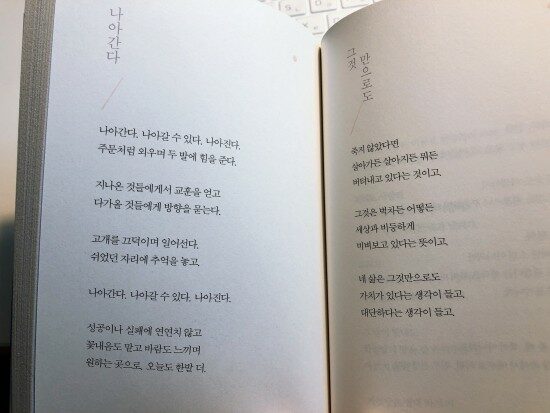 나아간다
나아간다. 나아갈 수 있다. 나아진다.
주문처럼 외우며 두 발에 힘을 준다.
지나온 것들에게서 교훈을 얻고
다가올 것들에게 방향을 묻는다.
고개를 끄덕이며 일어선다.
쉬었던 자리에 추억을 놓고.
나아간다. 나아갈 수 있다. 나아진다.
성공이나 실패에 연연치 않고
꽃내음도 맡고 바람도 느끼며
원하는 곳으로. 오늘도 한발 더.
그것
만으로도
죽지 않았다면
살아가든 살아지든 뭐든
버텨내고 있다는 것이고.
그것은 벅차든 어떻든
세상과 비등하게
비벼보고 있다는 뜻이고.
내 삶은 그것만으로도
가치가 있다는 생각이 들고.
대단하다는 생각이 들고.